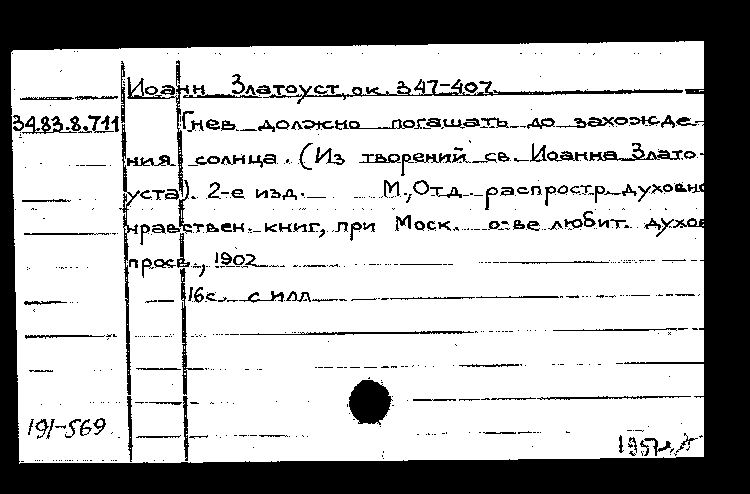 Иоанн Златоуст, ок. 347-407.
34.83.8.711 Гнев должно погашать до захожде-
ния солнца. (Из творений св. Иоанна Злато-
уста). 2-е изд. М., Отд. распростр. духовно
нравствен. книг, при Моск. о-ве любит. духов
просв., 1902
16с. с илл
191-569